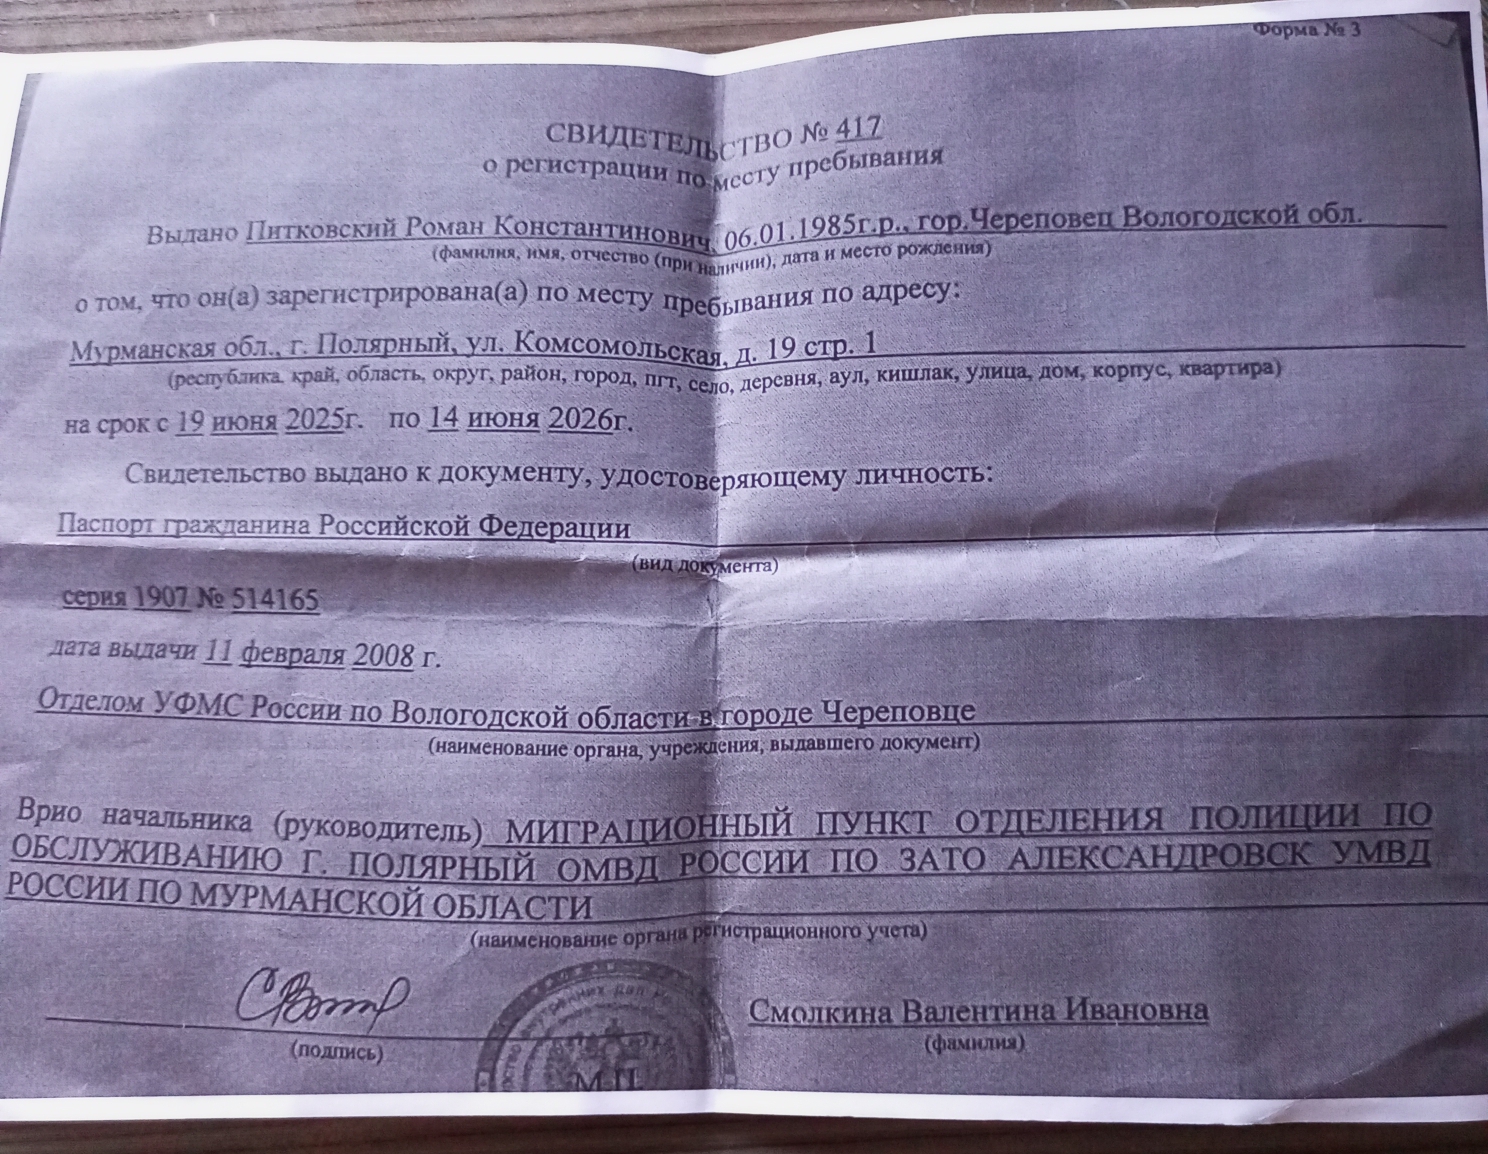 Форма № 3
СВИДЕТЕЛЬСТВО № 417
о регистрации по месту пребывания
Выдано Питковский Роман Константинович, 06.01.1985г.р., гор.Череповец Вологодской обл.
(фамилия, имя, отчество (при наличии), дата и место рождения)
о том, что он(а) зарегистрирована(а) по месту пребывания по адресу:
Мурманская обл., г. Полярный, ул. Комсомольская, д. 19 стр. 1
(республика, край, область, округ, район, город, пгт, село, деревня, аул, кишлак, улица, дом, корпус, квартира)
на срок с 19 июня 2025г. по 14 июня 2026г.
Свидетельство выдано к документу, удостоверяющему личность:
Паспорт гражданина Российской Федерации
(вид документа)
серия 1907 № 514165
дата выдачи 11 февраля 2008 г.
Отделом УФМС России по Вологодской области в городе Череповце
(наименование органа, учреждения, выдавшего документ)
Врио начальника (руководитель) МИГРАЦИОННЫЙ ПУНКТ ОТДЕЛЕНИЯ ПОЛИЦИИ ПО
ОБСЛУЖИВАНИЮ Г. ПОЛЯРНЫЙ ОМВД РОССИИ ПО ЗАТО АЛЕКСАНДРОВСК УМВД
РОССИИ ПО МУРМАНСКОЙ ОБЛАСТИ
(наименование органа регистрационного учета)
Смолкина Валентина Ивановна
(подпись)
(фамилия)
М.П.